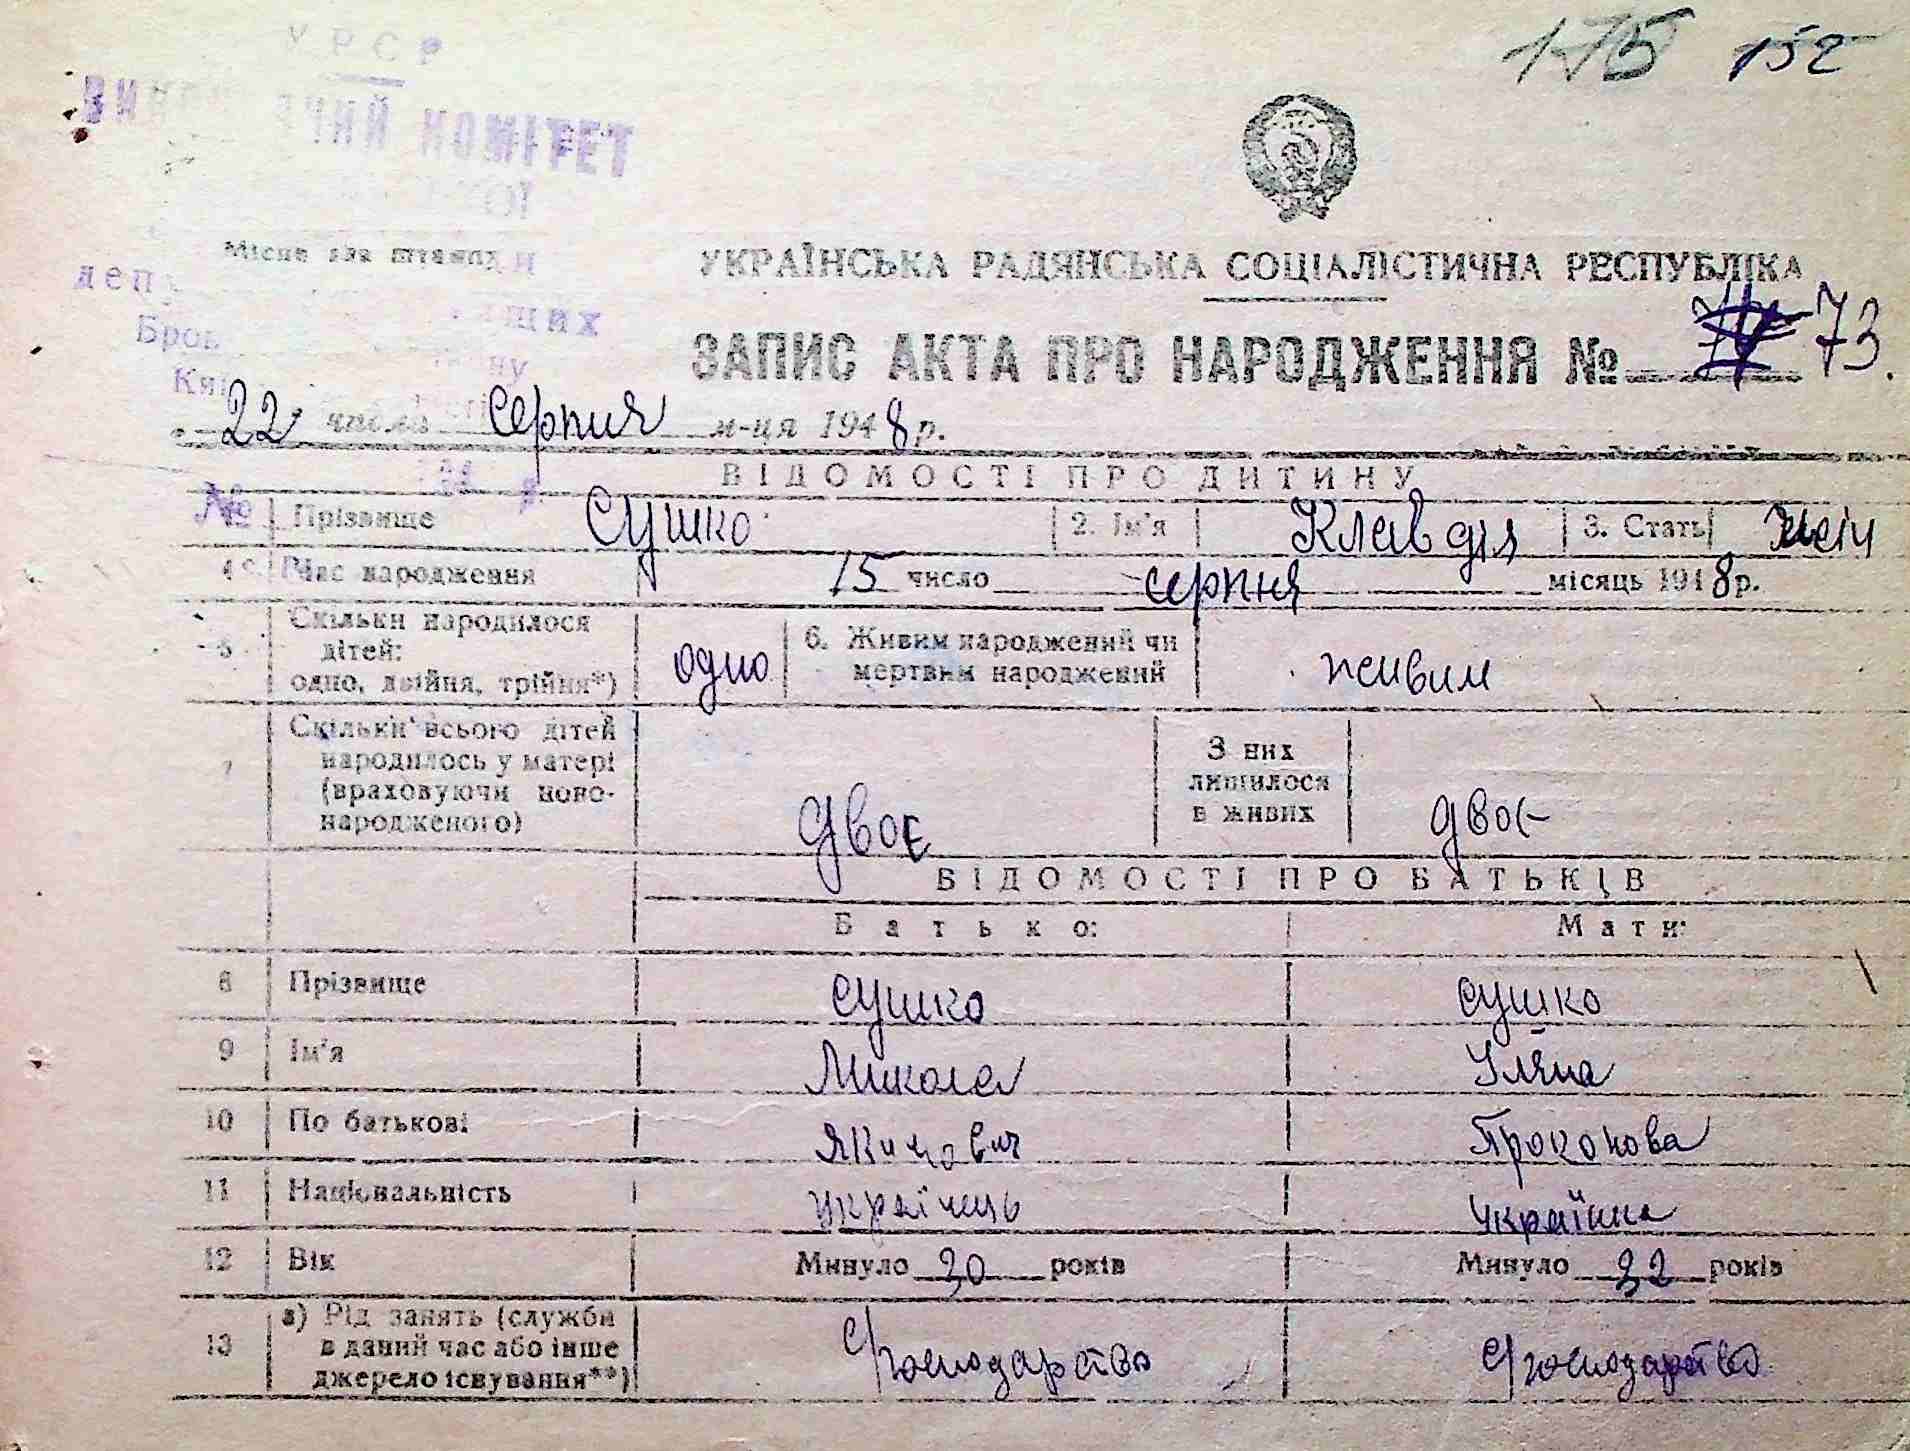 175 152
УРСР
ЧИЙ КОМІТЕТ
Місце для штампу
УКРАЇНСЬКА РАДЯНСЬКА СОЦІАЛІСТИЧНА РЕСПУБЛІКА
ЗАПИС АКТА ПРО НАРОДЖЕННЯ № 73.
22 числа серпня м-ця 1948 р.
ВІДОМОСТІ ПРО ДИТИНУ
№
Прізвище Сушко 2. Ім'я Клавдія 3. Стать жін
4 Час народження 15 число серпня місяць 1948 р.
5 Скільки народилося
дітей:
одно, двійня, трійня*) одно 6. Живим народжений чи
мертвим народжений живим
7 Скільки всього дітей
народилось у матері
(враховуючи ново-
народженого) двоє З них
лишилося
в живих двоє
ВІДОМОСТІ ПРО БАТЬКІВ
Батько: Мати:
8 Прізвище Сушко Сушко
9 Ім'я Микола Уляна
10 По батькові Якимович Проконова
11 Національність українець українка
12 Вік Минуло 30 років Минуло 32 років
13 а) Рід занять (служби
в даний час або інше
джерело існування**) С/господарство С/господарство